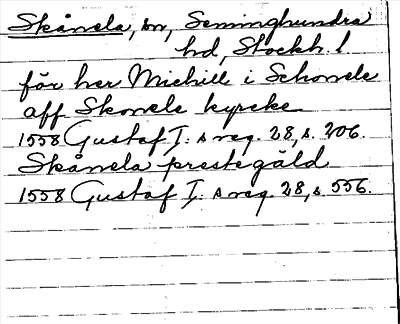 Skånela, sn, Seminghundra
hd, Stockh. l
för her Michill i Schonele
aff Skonele kyrcke
1558 Gustaf I:s reg. 28, s. 206.
Skånela prestegäld
1558 Gustaf I:s reg. 28, s. 556.